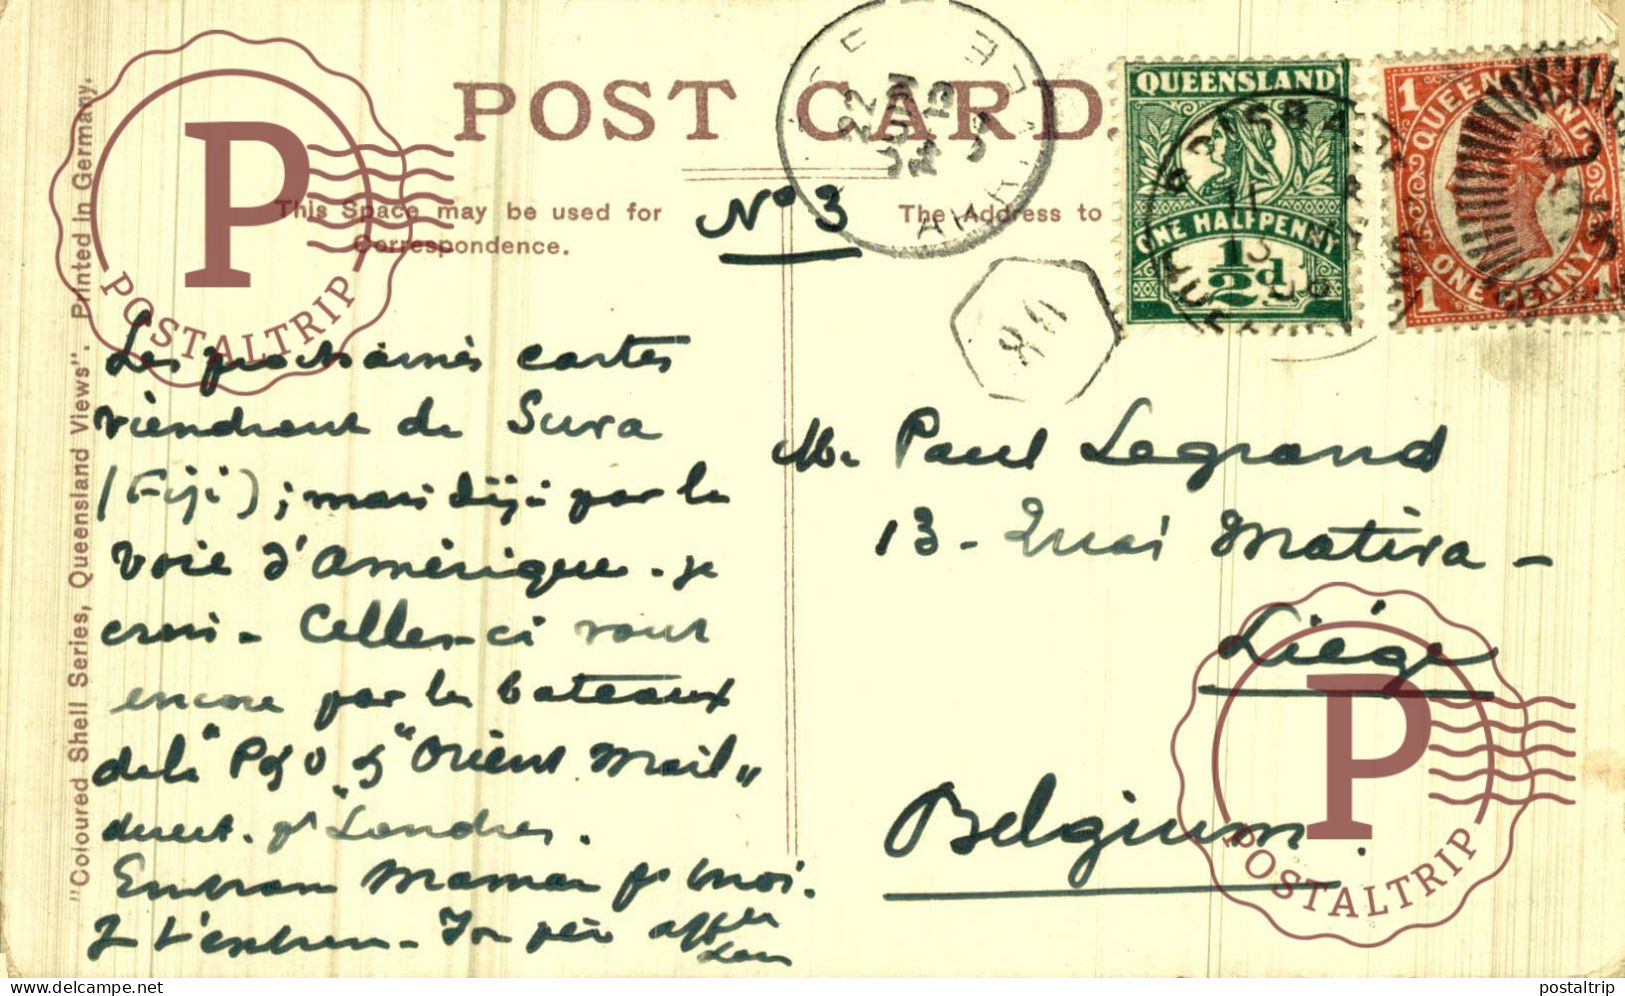 POST CARD.
This Space may be used for
Correspondence.
The Address to
No 3
"Coloured Shell Series, Queensland Views". Printed in Germany.
QUEENSLAND
ONE HALFPENNY
½d
QUEENSLAND
ONE PENNY
1 1 1
22
JUN
Les prochaines cartes
viendront de Suva
(Fiji); mais déjà par la
voie d'Amérique. je
crois - Celles-ci vont
encore par les bateaux
de la "P & O & "Orient Mail"
direct. pr Londres.
Embrasse Maman pr moi.
Je t'
Ton père
Mr Paul Legrand
13 - Quai Mativa -
Liége
Belgium.
P
POSTALTRIP
P
POSTALTRIP
Delcampe.net
postaltrip